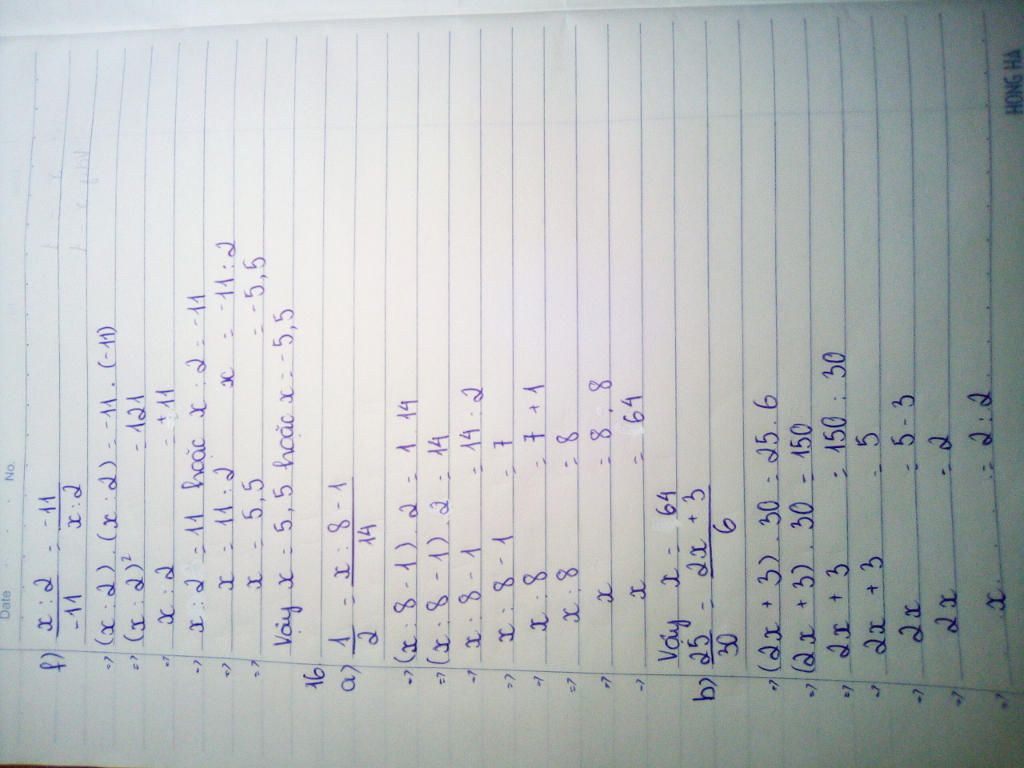 Date . . . No.
f) x : 2 / -11 = -11 / x : 2
=> (x : 2) . (x : 2) = -11 . (-11)
=> (x : 2)² = 121
=> x : 2 = ±11
=> x : 2 = 11 hoặc x : 2 = -11
=> x = 11 : 2 x = -11 : 2
=> x = 5,5 = -5,5
Vậy x = 5,5 hoặc x = -5,5
16
a) 1 / 2 = x : 8 - 1 / 14
=> (x : 8 - 1) . 2 = 1 . 14
=> (x : 8 - 1) . 2 = 14
=> x : 8 - 1 = 14 : 2
=> x : 8 - 1 = 7
=> x : 8 = 7 + 1
=> x : 8 = 8
=> x = 8 . 8
=> x = 64
Vậy x = 64
b) 25 / 30 = 2x + 3 / 6
=> (2x + 3) . 30 = 25 . 6
=> (2x + 3) . 30 = 150
=> 2x + 3 = 150 : 30
=> 2x + 3 = 5
=> 2x = 5 - 3
=> 2x = 2
=> x = 2 : 2
HONG HA